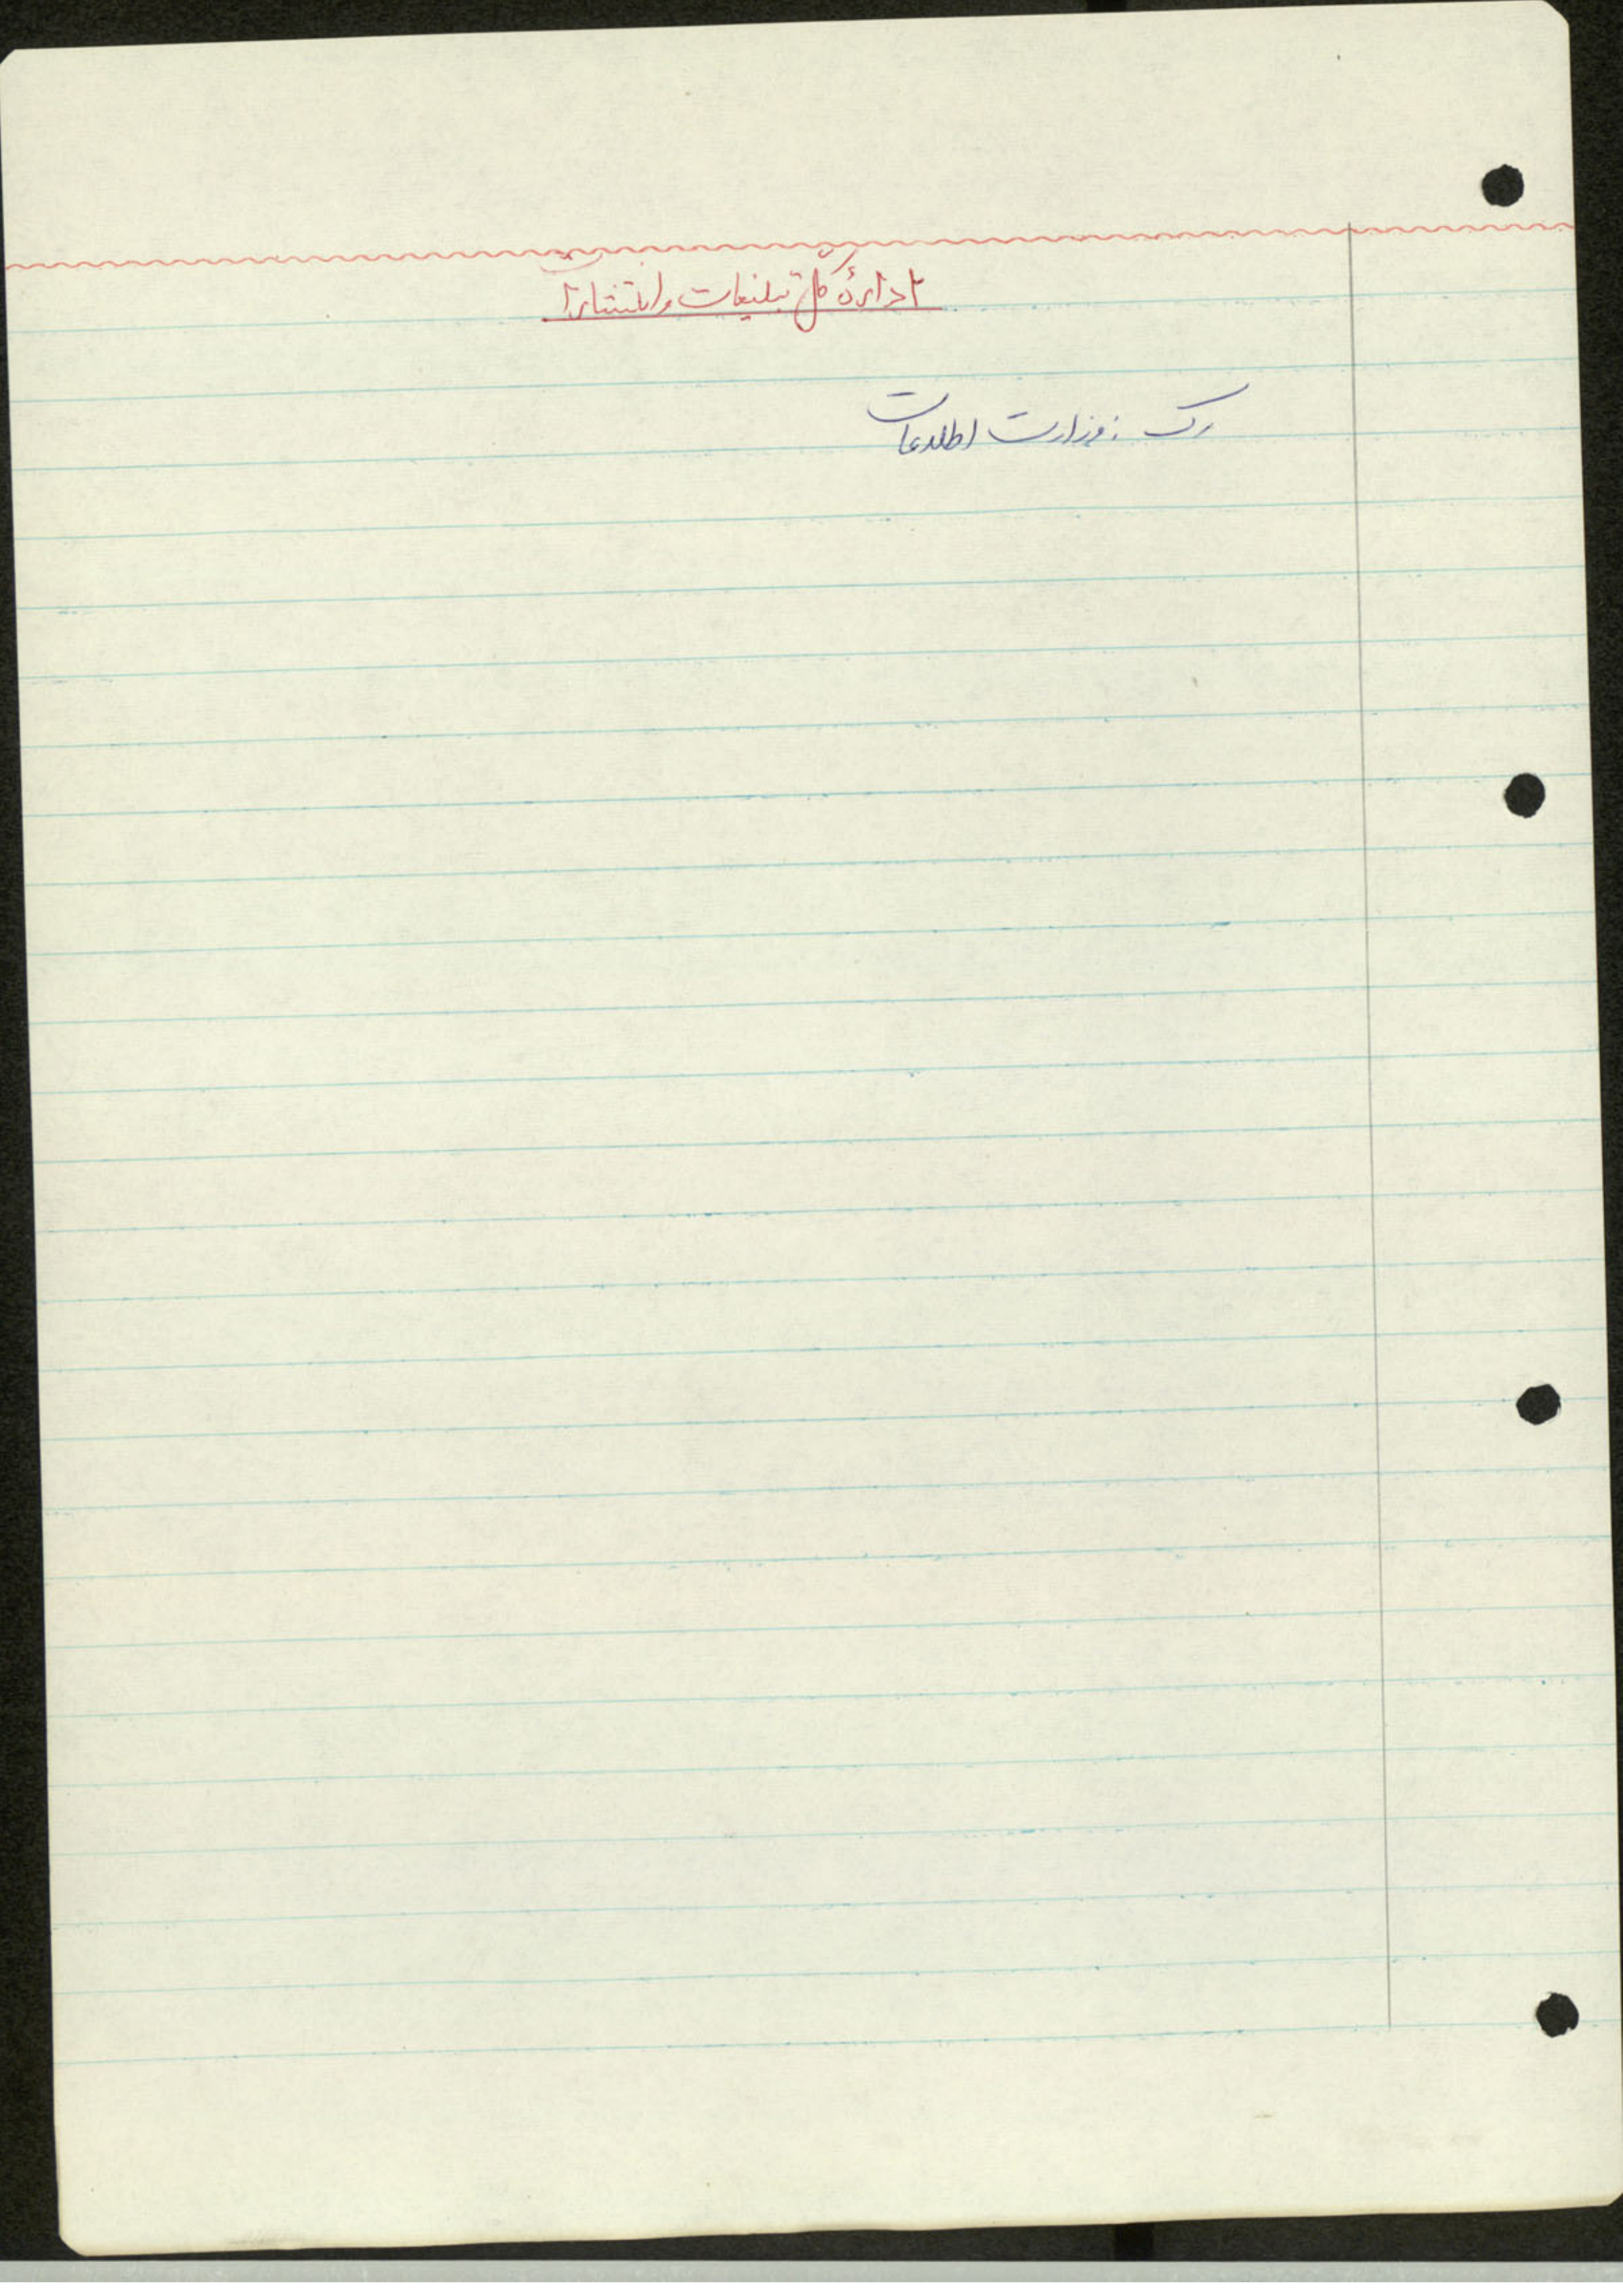 ادارهٔ کل تبلیغات و انتشارات
رک : وزارت اطلاعات